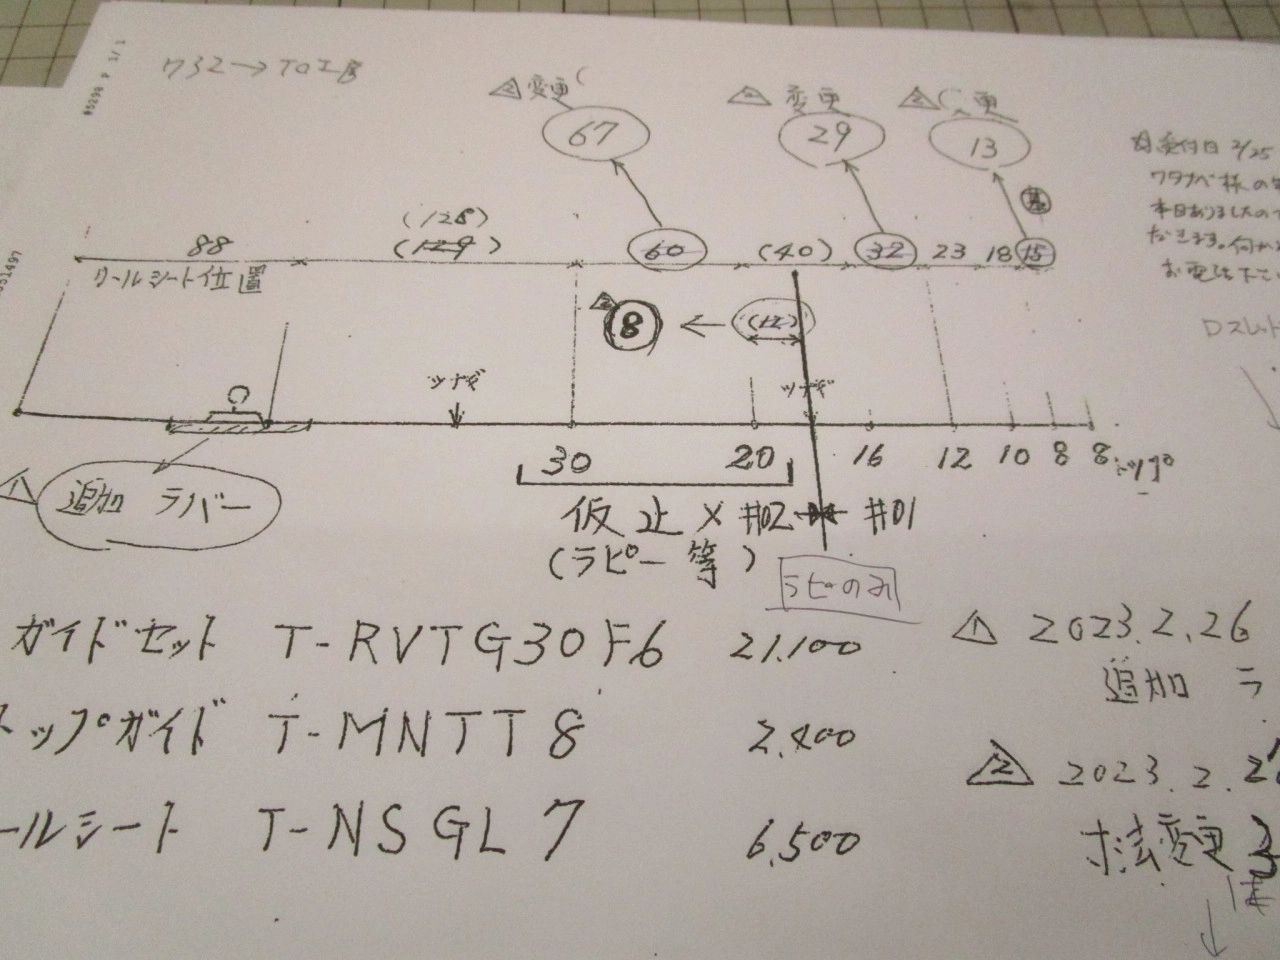 732→TO工房
△2 変更
67
変更
29
変更
13
受付日 2/25
ワタナベ様の
本日ありましたの
お電話下さい
Dスレッド
(128)
88
(129)
60
(40)
32
23
18
15
リールシート位置
△2
8
←
(12)
ツナギ
ツナギ
30
20
16
12
10
8
8
トップ
△1
追加 ラバー
仮止 × #02
#01
(ラピー等)
ラピーのみ
ガイドセット T-RVTG30F6 21.100
トップガイド T-MNTT8 2.400
ールシート T-NSGL7 6.500
△1 2023.2.26
追加 ラ
△2 2023.2.2
寸法変更 3